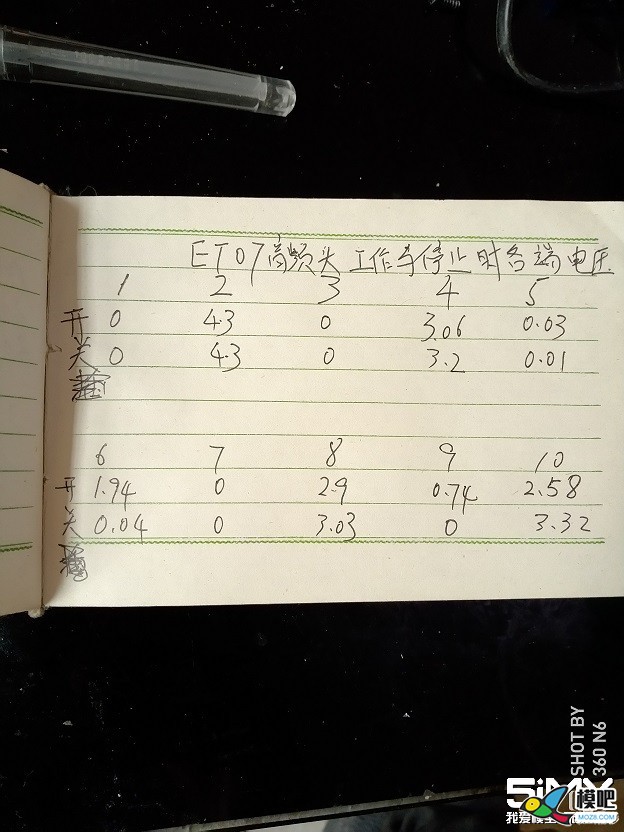 ET07高频头工作与停止时各端电压
1 2 3 4 5
开 0 43 0 3.06 0.03
关 0 43 0 3.2 0.01
6 7 8 9 10
开 1.94 0 2.9 0.74 2.58
关 0.04 0 3.03 0 3.32
SHOT BY
360 N6
5iMX
我爱模型
模吧
MOZ8.COM